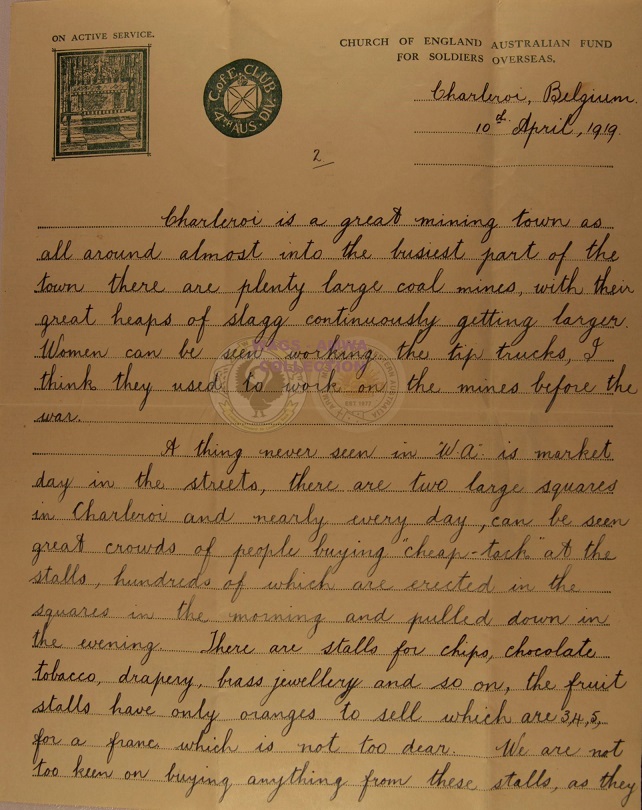 ON ACTIVE SERVICE.
CHURCH OF ENGLAND AUSTRALIAN FUND
FOR SOLDIERS OVERSEAS.
C of E. CLUB
4TH AUS. DIV.
Charleroi, Belgium.
10th April, 1919.
2
Charleroi is a great mining town as
all around almost into the busiest part of the
town there are plenty large coal mines, with their
great heaps of slagg continuously getting larger.
Women can be seen working the tip trucks, I
think they used to work on the mines before the
war.
COLLECTION
A thing never seen in "W.A." is market
day in the streets, there are two large squares
in Charleroi and nearly every day, can be seen
great crowds of people buying "cheap-tack" at the
stalls, hundreds of which are erected in the
squares in the morning and pulled down in
the evening. There are stalls for chips, chocolate
tobacco, drapery, brass jewellery and so on, the fruit
stalls have only oranges to sell which are 3,4,5,
for a franc which is not too dear. We are not
too keen on buying anything from these stalls, as they